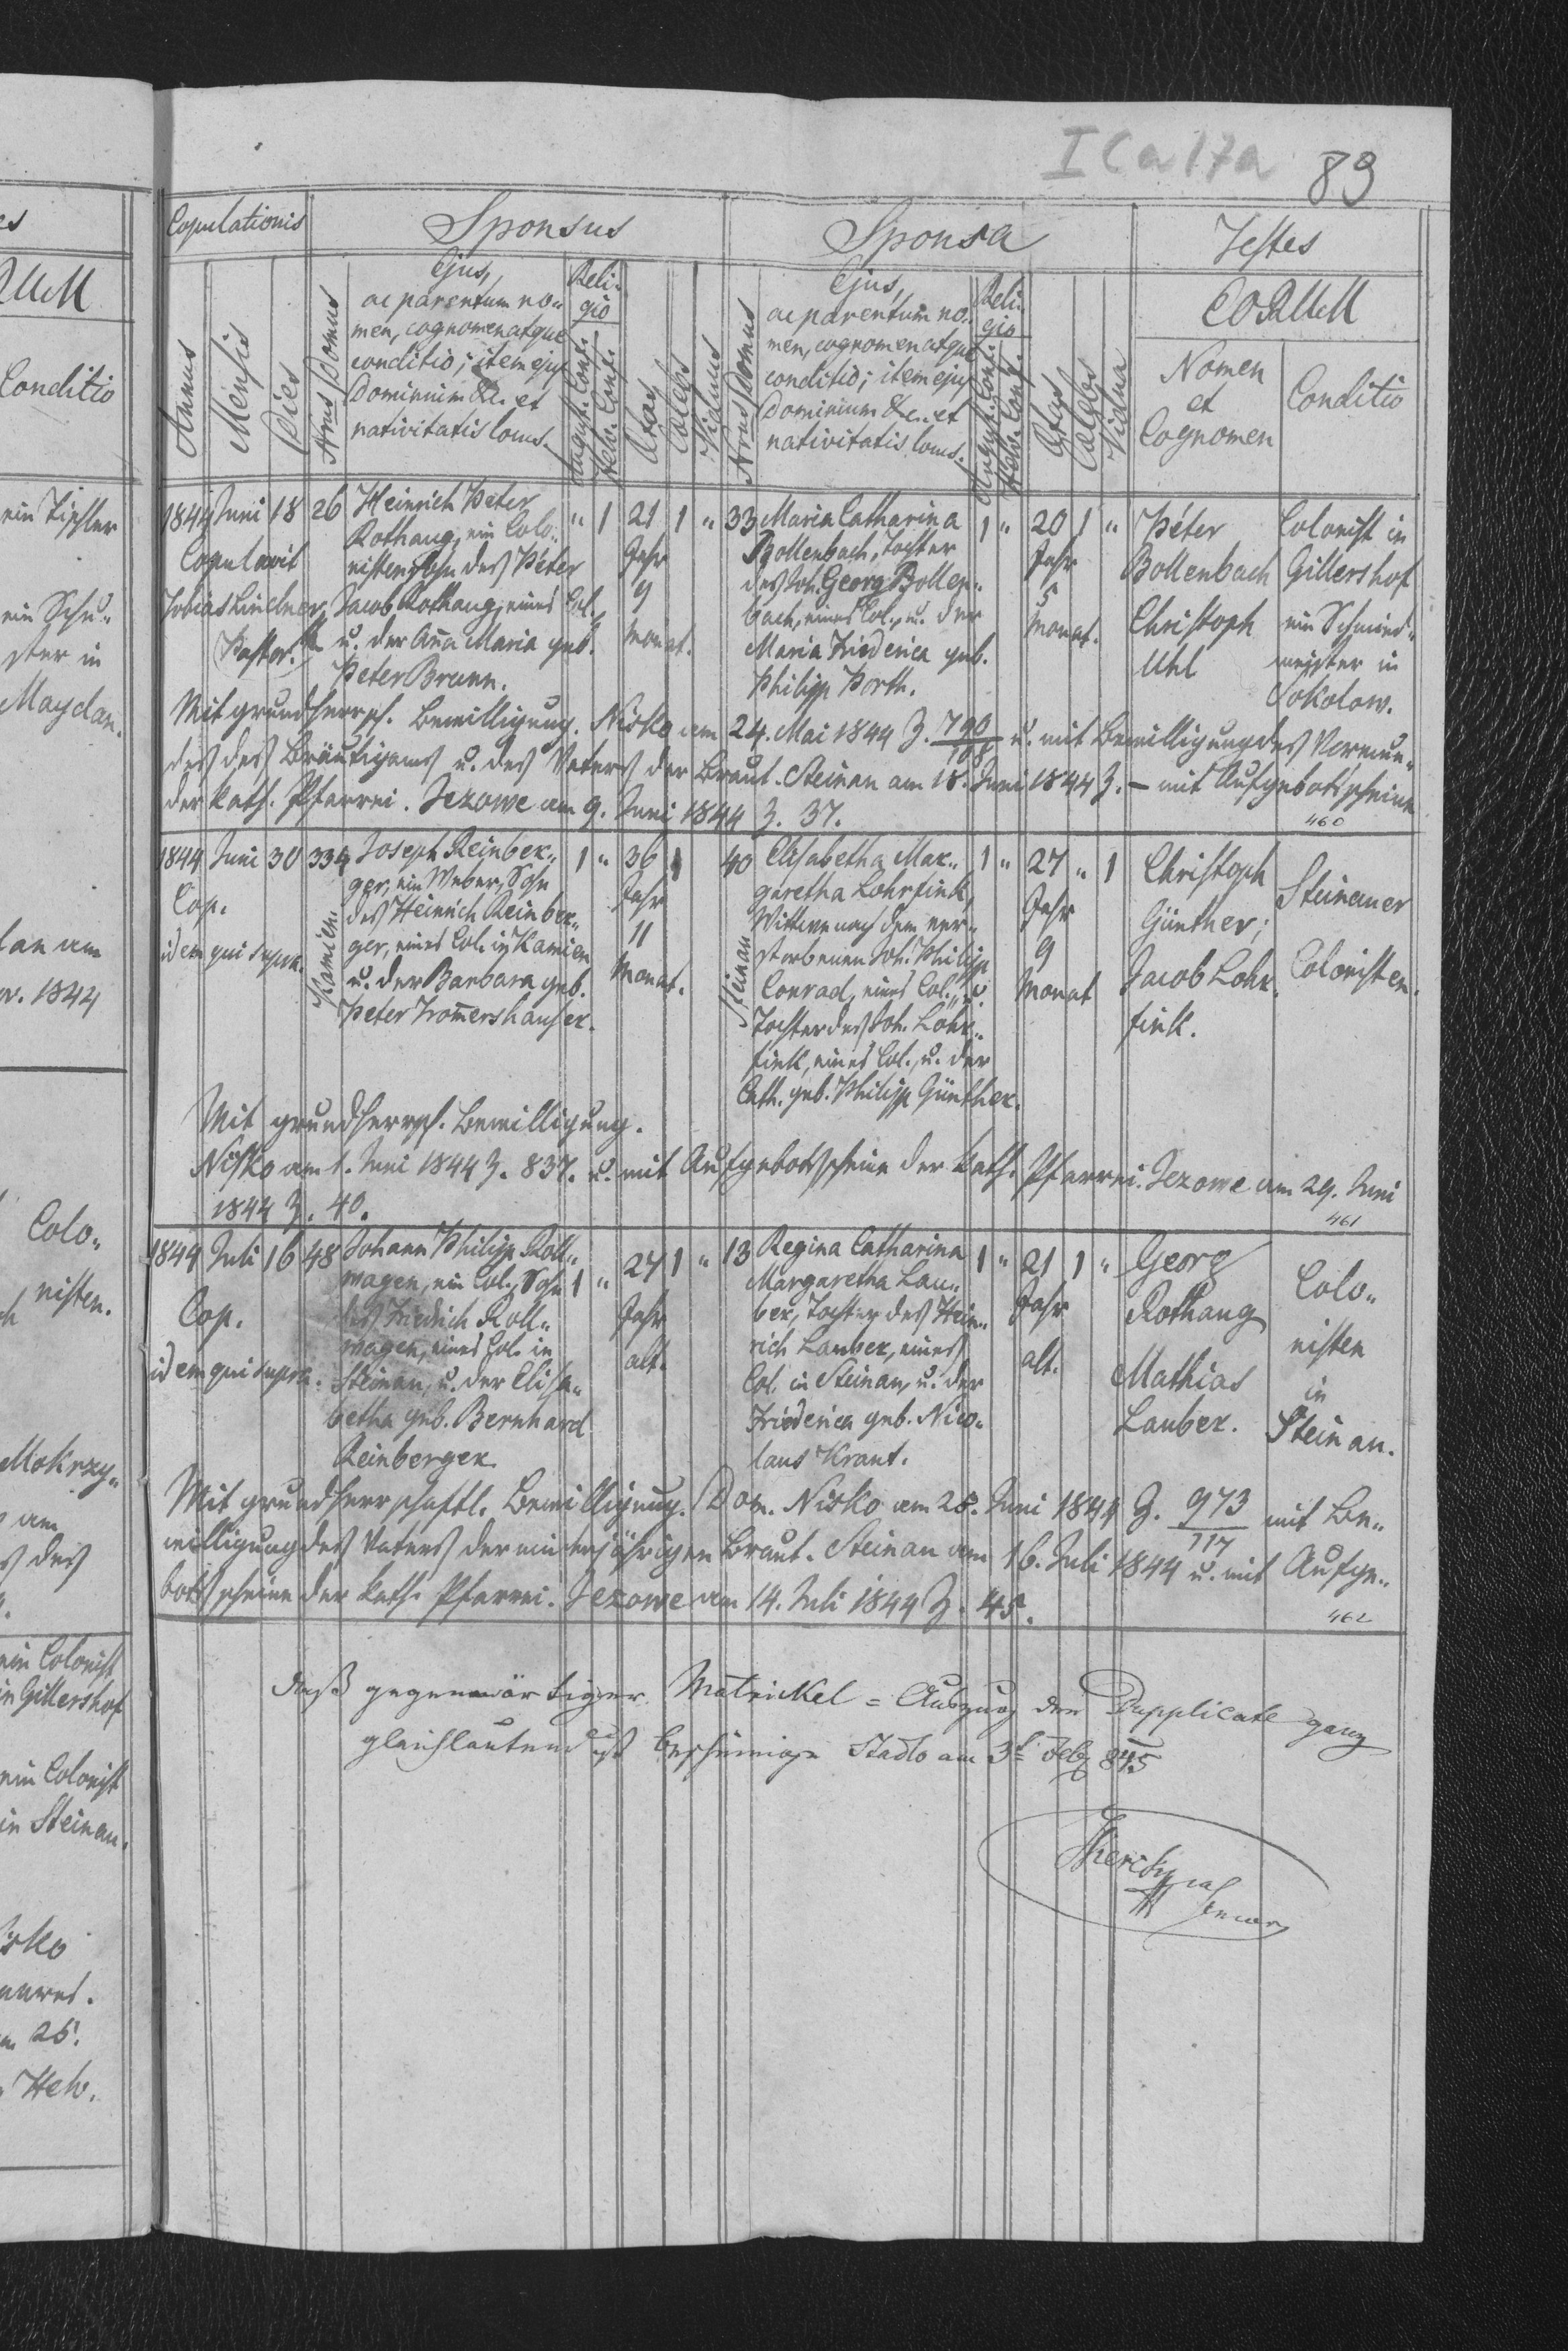 I Ca 17a 89
Copulationis Sponsus Sponsa Testes
Annus
Mensis
Dies
Nrus Domus
Ejus,
ac parentum no-
men, cognomen atque
conditio; item ejus
Dominium &c. et
nativitatis locus.
Reli-
gio
August. Conf.
Helv. Conf.
Aetas
Caelebs
Viduus
Nrus Domus
Ejus,
ac parentum no-
men, cognomen atque
conditio; item ejus
Dominium &c. et
nativitatis locus.
Reli-
gio
August. Conf.
Helv. Conf.
Aetas
Caelebs
Vidua
EORUM
Nomen
et
Cognomen
Conditio
1844 Juni 18 26
Copulavit
Tobias Lindner,
Pastor.
Heinrich Peter
Rothaug, ein Colo-
nistensohn des Peter
Jacob Rothaug, eines Col.
u. der Anna Maria geb.
Peter Brunn.
" 1 21 1 "
Jahr
9
Monat.
33 Maria Catharina
Bollenbach, Tochter
des Joh. Georg Bollen-
bach, eines Col., u. der
Maria Friederica geb.
Philipp Porth.
1 " 20 1 "
Jahr
5
Monat.
Peter
Bollenbach
Christoph
Uhl
Colonist in
Gillershof
ein Schmied-
meister in
Sokolow.
Mit grundherrsch. Bewilligung. Nisko am 24. Mai 1844 Z. 790/108 u. mit Bewilligung des Vormun-
des des Bräutigams u. des Vaters der Braut. Steinau am 18. Juni 1844 Z. – mit Aufgebotsscheine
der kath. Pfarrei. Jezowe am 9. Juni 1844 Z. 37.
460
1844 Juni 30 334
Cop.
idem qui supra.
Kamien
Joseph Reinber-
ger, ein Weber, Sohn
des Heinrich Reinber-
ger, eines Col. in Kamien
u. der Barbara geb.
Peter Tromershauser.
1 " 36 1
Jahr
11
Monat.
40
Steinau
Elisabetha Mar-
garetha Lohrfink,
Wittwe nach dem ver-
storbenen Joh. Philipp
Conrad, eines Col., u.
Tochter des Joh. Lohr-
fink, eines Col., u. der
Cath. geb. Philipp Günther.
1 " 27 " 1
Jahr
9
Monat
Christoph
Günther;
Jacob Lohr-
fink.
Steinauer
Colonisten.
Mit grundherrsch. Bewilligung.
Nisko am 1. Juni 1844 Z. 837. u. mit Aufgebotsscheine der kath. Pfarrei. Jezowe am 29. Juni
1844 Z. 40.
461
1844 Juli 16 48
Cop.
idem qui supra.
Johann Philipp Roll-
wagen, ein Col., Sohn
des Friedrich Roll-
wagen, eines Col. in
Steinau, u. der Elisa-
betha geb. Bernhard
Reinberger.
1 " 27 1 "
Jahr
alt.
13 Regina Catharina
Margaretha Lau-
ber, Tochter des Hein-
rich Lauber, eines
Col. in Steinau, u. der
Friederica geb. Nico-
laus Kraut.
1 " 21 1 "
Jahr
alt.
Georg
Rothaug
Mathias
Lauber.
Colo-
nisten
in
Steinau.
Mit grundherrschaftl. Bewilligung. Dom. Nisko am 28. Juni 1844 Z. 973/117 mit Be-
willigung des Vaters der minderjährigen Braut. Steinau am 16. Juli 1844 u. mit Aufge-
botsscheine der kath. Pfarrei. Jezowe am 14. Juli 1844 Z. 45.
462
Daß gegenwärtiger Matrickel = Auszug dem Dupplicate ganz
gleichlautend ist bescheinige Stadlo am 3t Feb 845
Senior
es
RUM
Conditio
ein Tischler
ein Schu-
ster in
Maydan.
lan am
1844
Colo-
nisten.
Mokrzy-
am
des
ein Colonist
in Gillershof
ein Colonist
in Steinau.
isko
25.
Helv.